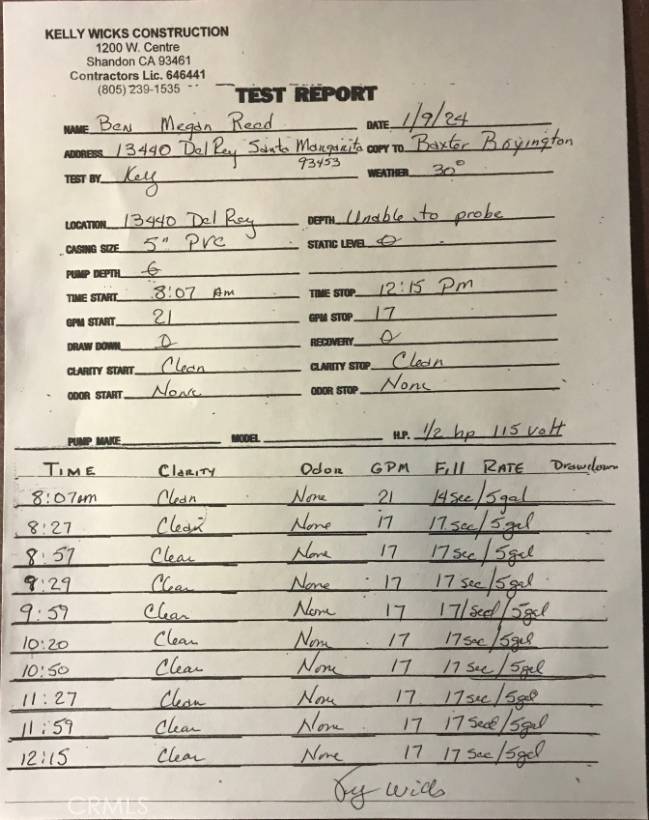 KELLY WICKS CONSTRUCTION
1200 W. Centre
Shandon CA 93461
Contractors Lic. 646441
(805) 239-1535
TEST REPORT
NAME Ben Megan Reed DATE 1/9/24
ADDRESS 13440 Del Rey Santa Margarita COPY TO Baxter Boyington
93453
TEST BY WEATHER 30°
LOCATION 13440 Del Rey DEPTH Unable to probe
CASING SIZE 5" PVC STATIC LEVEL 0
PUMP DEPTH
TIME START 8:07 Am TIME STOP 12:15 Pm
GPM START 21 GPM STOP 17
DRAW DOWN 0 RECOVERY 0
CLARITY START Clean CLARITY STOP Clean
ODOR START None ODOR STOP None
PUMP MAKE MODEL H.P. 1/2 hp 115 volt
TIME CLARITY ODOR GPM Fill RATE Drawdown
8:07am Clean None 21 14sec/5gal
8:27 Clean None 17 17sec/5gal
8:57 Clear None 17 17sec/5gal
9:29 Clear None 17 17 sec/5gal
9:59 Clear None 17 17/sec/5gal
10:20 Clear None 17 17sec/5gal
10:50 Clear None 17 17 sec/5gal
11:27 Clean None 17 17sec/5gal
11:59 Clear None 17 17sec/5gal
12:15 Clear None 17 17 sec/5gal
Wicks
CRMLS